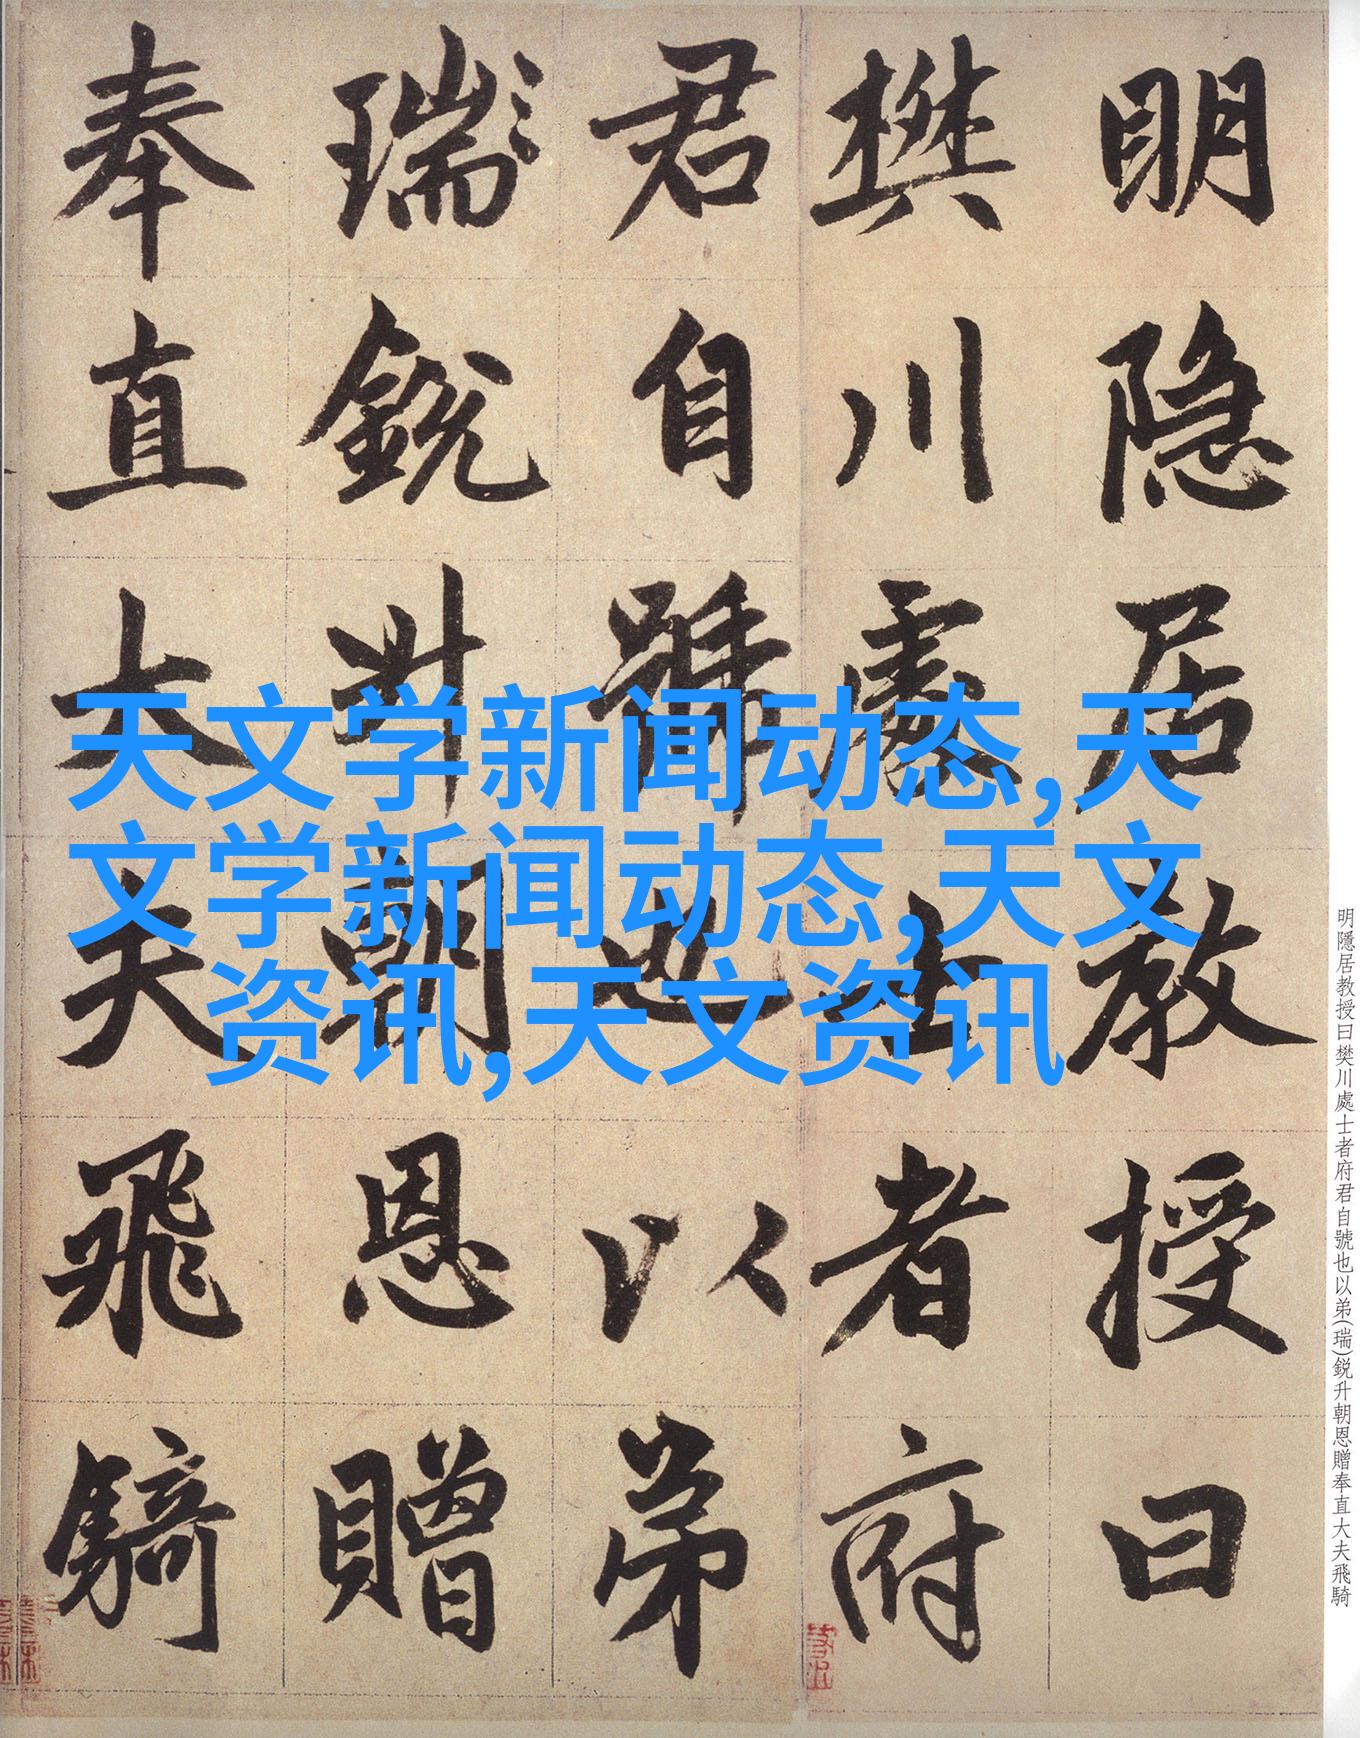 明隐居教授曰
樊川處士者府
君自號也以弟
瑞銳升朝恩贈
奉直大夫飛騎
天文学新闻动态,天
文学新闻动态,天文
资讯,天文资讯
明隱居教授曰樊川處士者府君自號也以弟(瑞)鋭升朝恩贈奉直大夫飛騎